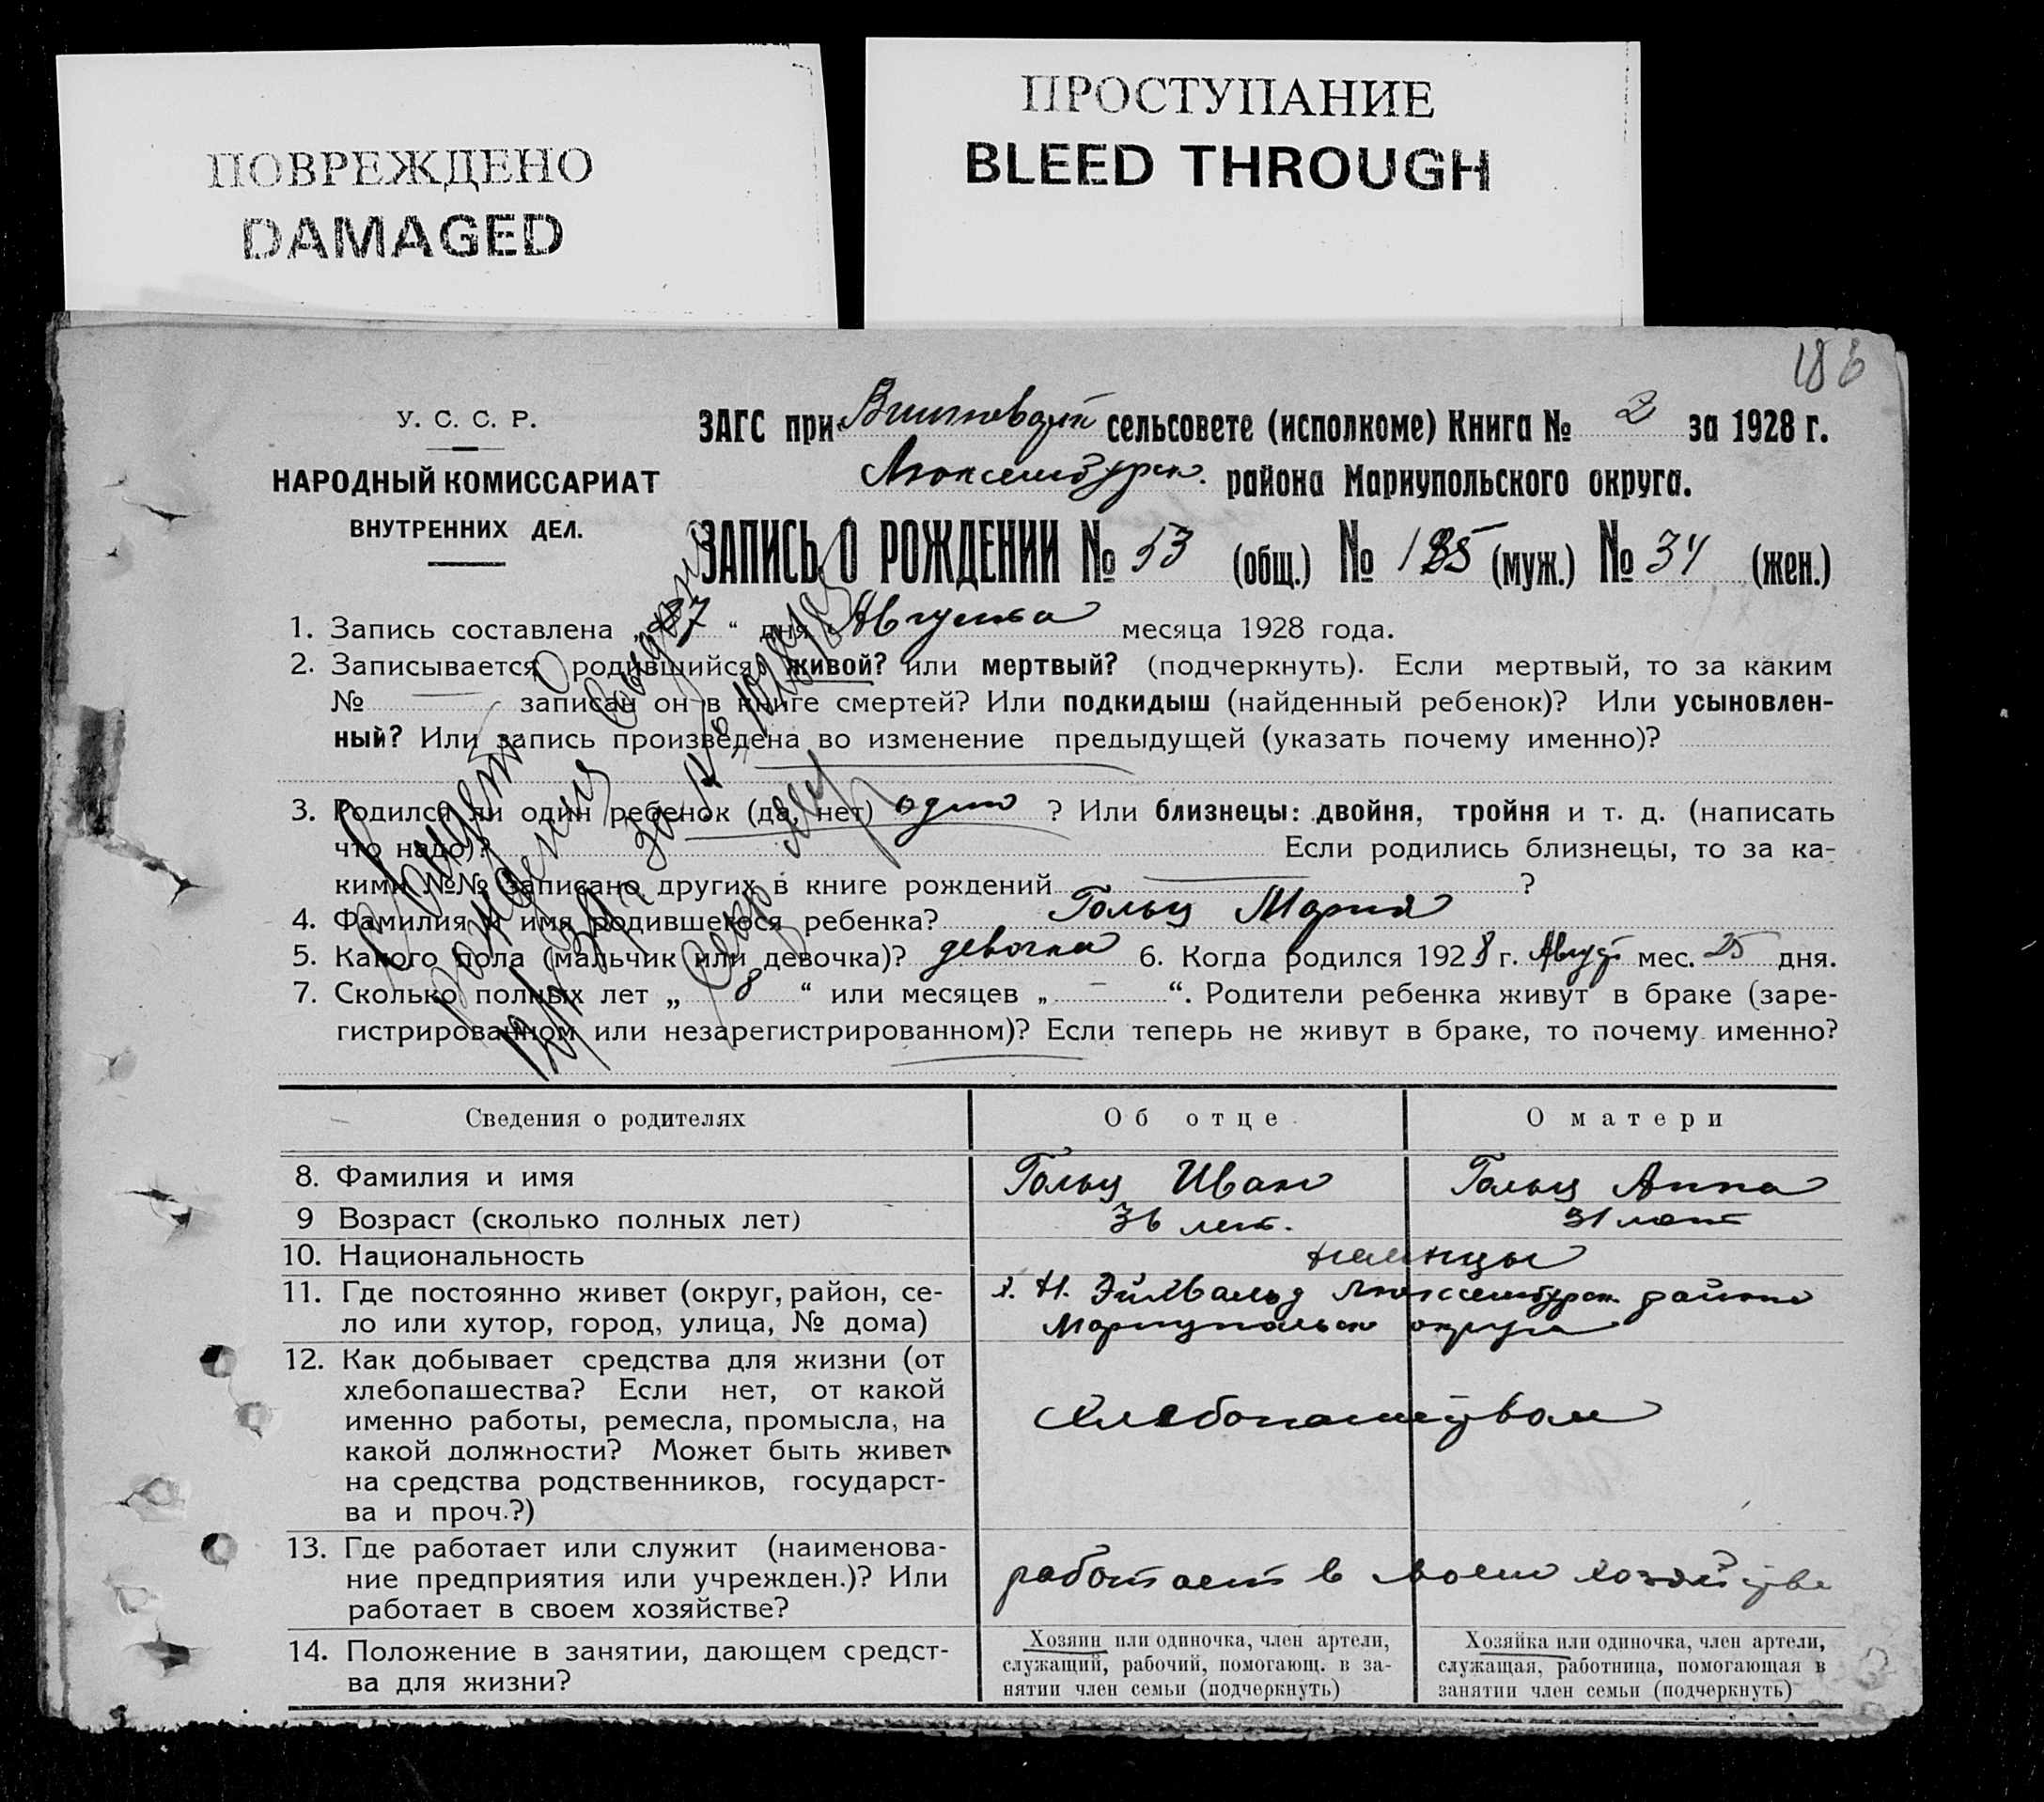 ПОВРЕЖДЕНО
DAMAGED
ПРОСТУПАНИЕ
BLEED THROUGH
186
У. С. С. Р.
НАРОДНЫЙ КОМИССАРИАТ
ВНУТРЕННИХ ДЕЛ.
ЗАГС при сельсовете (исполкоме) Книга № 2 за 1928 г.
Люксембургск. района Мариупольского округа.
ЗАПИСЬ О РОЖДЕНИИ № 53 (общ.) № (муж.) № 34 (жен.)
1. Запись составлена „27“ дня Августа месяца 1928 года.
2. Записывается родившийся: живой? или мертвый? (подчеркнуть). Если мертвый, то за каким
№ записан он в книге смертей? Или подкидыш (найденный ребенок)? Или усыновлен-
ный? Или запись произведена во изменение предыдущей (указать почему именно)?
3. Родился ли один ребенок (да, нет) один ? Или близнецы: двойня, тройня и т. д. (написать
что надо)? Если родились близнецы, то за ка-
кими №№ записано других в книге рождений ?
4. Фамилия и имя родившегося ребенка? Гольц Мария
5. Какого пола (мальчик или девочка)? девочка 6. Когда родился 1928 г. Август мес. 25 дня.
7. Сколько полных лет „ 8 “ или месяцев „ – “. Родители ребенка живут в браке (заре-
гистрированном или незарегистрированном)? Если теперь не живут в браке, то почему именно?
Сведения о родителях Об отце О матери
8. Фамилия и имя Гольц Иван Гольц Анна
9 Возраст (сколько полных лет) 36 лет. 31 лет
10. Национальность немцы
11. Где постоянно живет (округ, район, се-
ло или хутор, город, улица, № дома)
Н. Эйхвальд Люксембургск. района
Мариупольск округа
12. Как добывает средства для жизни (от
хлебопашества? Если нет, от какой
именно работы, ремесла, промысла, на
какой должности? Может быть живет
на средства родственников, государст-
ва и проч.?)
хлебопашеством
13. Где работает или служит (наименова-
ние предприятия или учрежден.)? Или
работает в своем хозяйстве?
работает в своем хозяйстве
14. Положение в занятии, дающем средст-
ва для жизни?
Хозяин или одиночка, член артели,
служащий, рабочий, помогающ. в за-
нятии член семьи (подчеркнуть)
Хозяйка или одиночка, член артели,
служащая, работница, помогающая в
занятии член семьи (подчеркнуть)